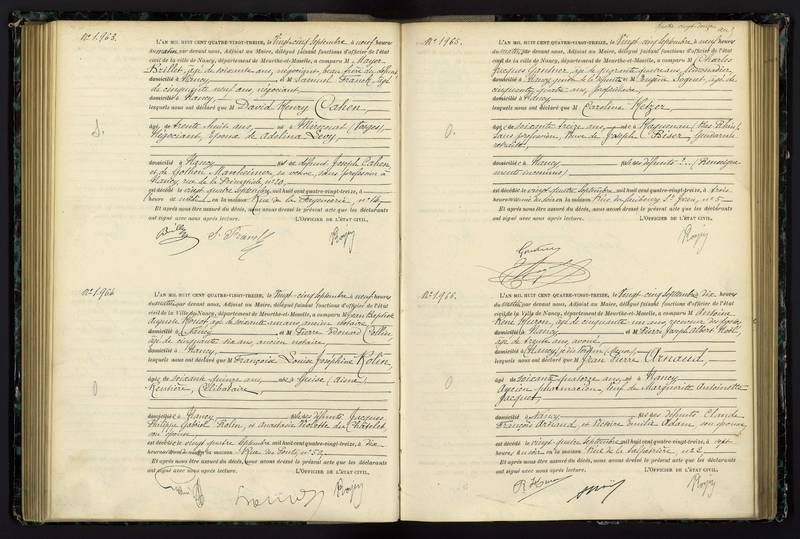 N° 1.963.
L'AN MIL HUIT CENT QUATRE-VINGT-TREIZE, le Vingt-cinq Septembre à neuf heures
du matin par devant nous, Adjoint au Maire, délégué faisant fonctions d'officier de l'état
civil de la ville de Nancy, département de Meurthe-et-Moselle, a comparu M Mayer
Brillet, âgé de soixante ans, négociant, beau frère du défunt
domicilié à Nancy et M Samuel Franck, âgé
de cinquante neuf ans, négociant
domicilié à Nancy
lesquels nous ont déclaré que M David Henry Cahen
âgé de trente huit ans, né à Mirecourt (Vosges)
Négociant, Epoux de Adelina Levy
domicilié à Nancy fils de défunt Joseph Cahen
et de Gothon Marcheimer, sa veuve, sans profession à
Nancy, rue de la n° 20,
est décédé le vingt quatre septembre, mil huit cent quatre-vingt-treize, à
heure en la maison Rue de la Fayencerie, n°
Et après nous être assuré du décès, nous avons dressé le présent acte que les déclarants
ont signé avec nous après lecture. L'OFFICIER DE L'ÉTAT CIVIL,
N° 1.964
L'AN MIL HUIT CENT QUATRE-VINGT-TREIZE, le Vingt-cinq Septembre à neuf heures
du matin par devant nous, Adjoint au Maire, délégué faisant fonctions d'officier de l'état
civil de la Ville de Nancy, département de Meurthe-et-Moselle, a comparu M Jean Baptiste
Auguste âgé de soixante ans, ancien notaire
domicilié à Nancy et M Pierre Edouard Collin,
âgé de cinquante dix ans, ancien notaire,
domicilié à Nancy,
lesquels nous ont déclaré que M Françoise Louise Joséphine Rolin,
âgée de soixante quinze ans, née à Guise (Aisne)
Rentière, Célibataire,
domiciliée à Nancy fille des défunts Jacques
Philippe Gabriel Rolin, et Anastasie Violette du Châtelet
son épouse
est décédée le vingt quatre septembre mil huit cent quatre-vingt-treize, à dix
heures en la maison Rue des Ponts, n° 52,
Et après nous être assuré du décès, nous avons dressé le présent acte que les déclarants
ont signé avec nous après lecture. L'OFFICIER DE L'ÉTAT CIVIL,
N° 1.965.
L'AN MIL HUIT CENT QUATRE-VINGT-TREIZE, le Vingt cinq Septembre à neuf heures
du matin par devant nous, Adjoint au Maire, délégué faisant fonctions d'officier de l'état
civil de la ville de Nancy, département de Meurthe-et-Moselle, a comparu M Charles
Jacques âgé de quarante ans,
domicilié à Nancy et M
cinquante quatre ans,
domicilié à Nancy
lesquels nous ont déclaré que M Caroline Metzer
âgée de soixante treize ans, née à Haguenau (Bas-Rhin),
sans profession, Veuve de Joseph Biser, Gendarme
retraité,
domiciliée à Nancy fille des défunts ?.. (Renseigne
ments inconnus)
est décédée le vingt quatre septembre, mil huit cent quatre-vingt-treize, à trois
heures en la maison Rue du faubourg St Jean, n° 5
Et après nous être assuré du décès, nous avons dressé le présent acte que les déclarants
ont signé avec nous après lecture. L'OFFICIER DE L'ÉTAT CIVIL,
L'AN MIL HUIT CENT QUATRE-VINGT-TREIZE, le Vingt-cinq Septembre dix heures
du matin par devant nous, Adjoint au Maire, délégué faisant fonctions d'officier de l'état
civil de la Ville de Nancy, département de Meurthe-et-Moselle, a comparu M Antoine
René âgé de cinquante un ans,
domicilié à Nancy et M Pierre Joseph Albert
âgé de trente ans, avoué,
domicilié à
lesquels nous ont déclaré que M Jean Pierre Arnaud,
âgé de soixante quatorze ans, né à Nancy
Ancien pharmacien, Veuf de Marguerite Antoinette
Jacquet,
domicilié à Nancy fils des défunts Claude
François Arnaud, et Victoire Emilie Adam, son épouse,
est décédé le vingt-quatre septembre mil huit cent quatre-vingt-treize, à sept
heures du soir en la maison Rue de la Salpêtrière, n° 2
Et après nous être assuré du décès, nous avons dressé le présent acte que les déclarants
ont signé avec nous après lecture. L'OFFICIER DE L'ÉTAT CIVIL,